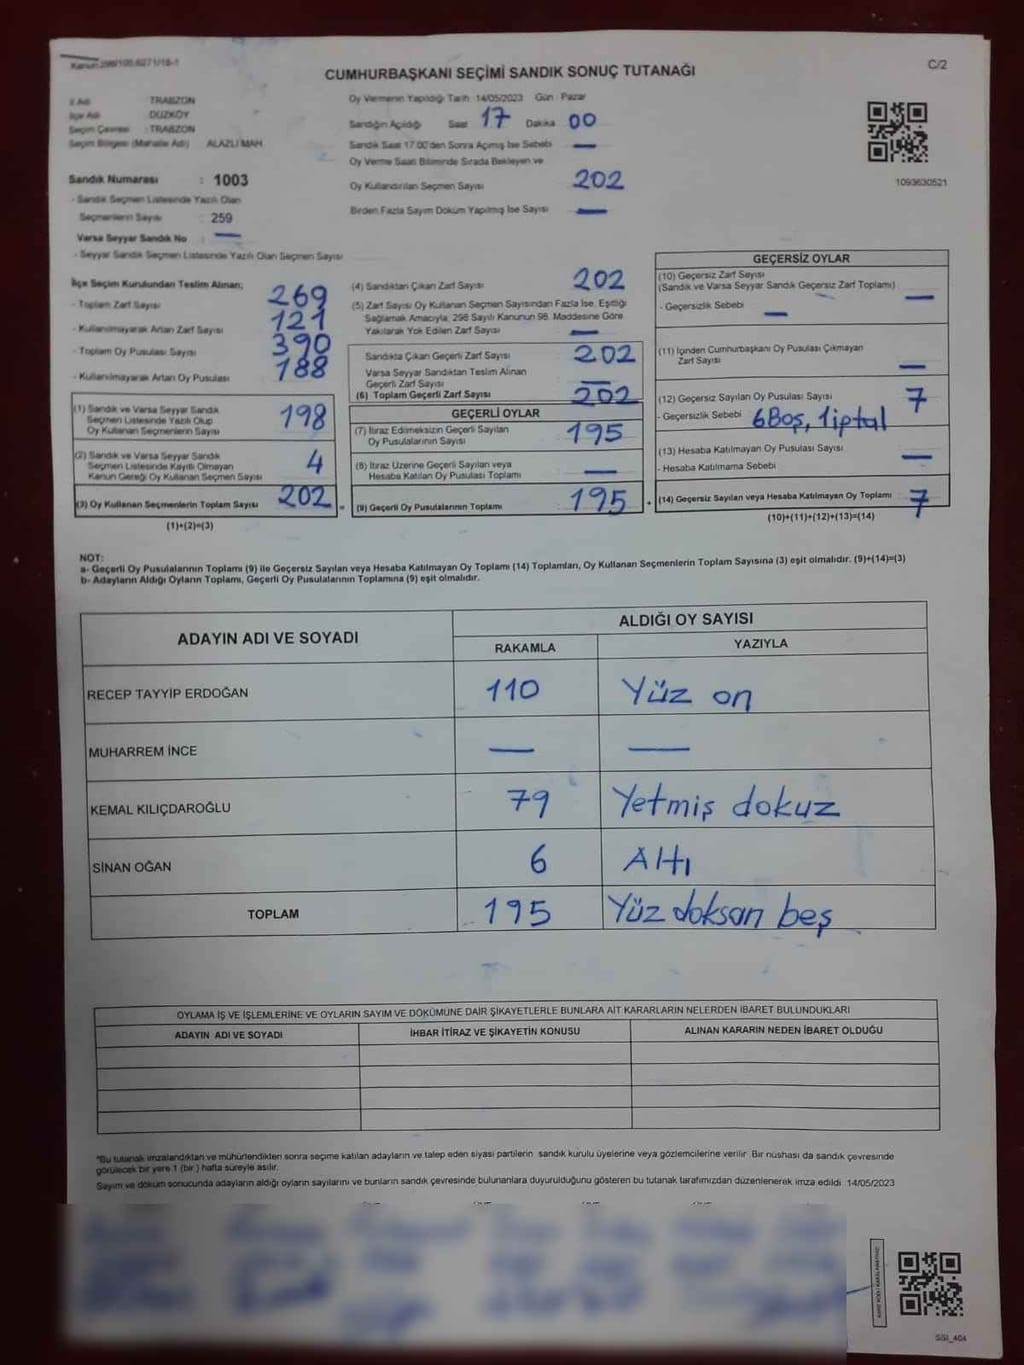 Kanun:298/106,6271/18-1
CUMHURBAŞKANI SEÇİMİ SANDIK SONUÇ TUTANAĞI
C/2
İl Adı : TRABZON
İlçe Adı : DÜZKÖY
Seçim Çevresi : TRABZON
Seçim Bölgesi (Mahalle Adı) ALAZLI MAH.
Sandık Numarası : 1003
- Sandık Seçmen Listesinde Yazılı Olan
Seçmenlerin Sayısı : 259
Varsa Seyyar Sandık No : —
- Seyyar Sandık Seçmen Listesinde Yazılı Olan Seçmen Sayısı
Oy Vermenin Yapıldığı Tarih :14/05/2023 Gün : Pazar
Sandığın Açıldığı Saat 17 Dakika 00
Sandık Saat 17.00'den Sonra Açımış İse Sebebi —
Oy Verme Saati Bitiminde Sırada Bekleyen ve
Oy Kullandırılan Seçmen Sayısı 202
Birden Fazla Sayım Döküm Yapılmış İse Sayısı —
1093630521
İlçe Seçim Kurulundan Teslim Alınan;
- Toplam Zarf Sayısı 269
- Kullanılmayarak Artan Zarf Sayısı 121
- Toplam Oy Pusulası Sayısı 390
- Kullanılmayarak Artan Oy Pusulası 188
(1) Sandık ve Varsa Seyyar Sandık
Seçmen Listesinde Yazılı Olup
Oy Kullanan Seçmenlerin Sayısı 198
(2) Sandık ve Varsa Seyyar Sandık
Seçmen Listesinde Kayıtlı Olmayan
Kanun Gereği Oy Kullanan Seçmen Sayısı 4
(3) Oy Kullanan Seçmenlerin Toplam Sayısı 202
(1)+(2)=(3)
(4) Sandıktan Çıkan Zarf Sayısı 202
(5) Zarf Sayısı Oy Kullanan Seçmen Sayısından Fazla İse, Eşitliği
Sağlamak Amacıyla, 298 Sayılı Kanunun 98. Maddesine Göre
Yakılarak Yok Edilen Zarf Sayısı —
Sandıkta Çıkan Geçerli Zarf Sayısı 202
Varsa Seyyar Sandıktan Teslim Alınan
Geçerli Zarf Sayısı —
(6) Toplam Geçerli Zarf Sayısı 202
GEÇERLİ OYLAR
(7) İtiraz Edilmeksizin Geçerli Sayılan
Oy Pusulalarının Sayısı 195
(8) İtiraz Üzerine Geçerli Sayılan veya
Hesaba Katılan Oy Pusulası Toplamı —
= (9) Geçerli Oy Pusulalarının Toplamı 195 +
GEÇERSİZ OYLAR
(10) Geçersiz Zarf Sayısı
(Sandık ve Varsa Seyyar Sandık Geçersiz Zarf Toplamı) —
- Geçersizlik Sebebi —
(11) İçinden Cumhurbaşkanı Oy Pusulası Çıkmayan
Zarf Sayısı —
(12) Geçersiz Sayılan Oy Pusulası Sayısı 7
- Geçersizlik Sebebi 6Boş, 1iptal
(13) Hesaba Katılmayan Oy Pusulası Sayısı —
- Hesaba Katılmama Sebebi
(14) Geçersiz Sayılan veya Hesaba Katılmayan Oy Toplamı 7
(10)+(11)+(12)+(13)=(14)
NOT:
a- Geçerli Oy Pusulalarının Toplamı (9) ile Geçersiz Sayılan veya Hesaba Katılmayan Oy Toplamı (14) Toplamları, Oy Kullanan Seçmenlerin Toplam Sayısına (3) eşit olmalıdır. (9)+(14)=(3)
b- Adayların Aldığı Oyların Toplamı, Geçerli Oy Pusulalarının Toplamına (9) eşit olmalıdır.
ADAYIN ADI VE SOYADI
ALDIĞI OY SAYISI
RAKAMLA YAZIYLA
RECEP TAYYİP ERDOĞAN 110 Yüz on
MUHARREM İNCE — —
KEMAL KILIÇDAROĞLU 79 Yetmiş dokuz
SİNAN OĞAN 6 Altı
TOPLAM 195 Yüz doksan beş
OYLAMA İŞ VE İŞLEMLERİNE VE OYLARIN SAYIM VE DÖKÜMÜNE DAİR ŞİKAYETLERLE BUNLARA AİT KARARLARIN NELERDEN İBARET BULUNDUKLARI
ADAYIN ADI VE SOYADI İHBAR İTİRAZ VE ŞİKAYETİN KONUSU ALINAN KARARIN NEDEN İBARET OLDUĞU
*Bu tutanak imzalandıktan ve mühürlendikten sonra seçime katılan adayların ve talep eden siyasi partilerin sandık kurulu üyelerine veya gözlemcilerine verilir. Bir nüshası da sandık çevresinde
görülecek bir yere 1 (bir ) hafta süreyle asılır.
Sayım ve döküm sonucunda adayların aldığı oyların sayılarını ve bunların sandık çevresinde bulunanlara duyurulduğunu gösteren bu tutanak tarafımızdan düzenlenerek imza edildi. 14/05/2023
SSI_404